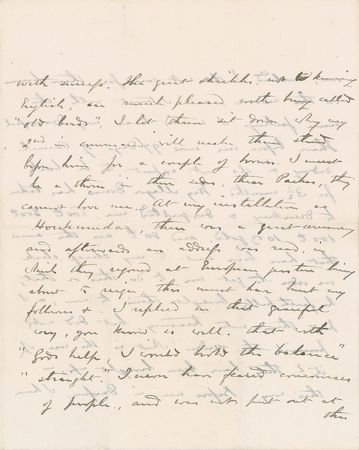 with success. The great sheikhs, not knowing
English, are much pleased with being called
"old birds", I let them sit down. My
2nd in command will make them stand
before him for a couple of hours. I must
be a thorn in their sides, these Pashas, they
cannot love me. At my installation as
there was a great ceremony
and afterwards an address was read in
which they rejoiced at European justice being
about to reign. this must have hurt my
followers &. I replied in that graceful
way, you know so well, that with
"Gods help, I would hold the balance
straight." I never have feared concourses
of people, and was not put out at
this